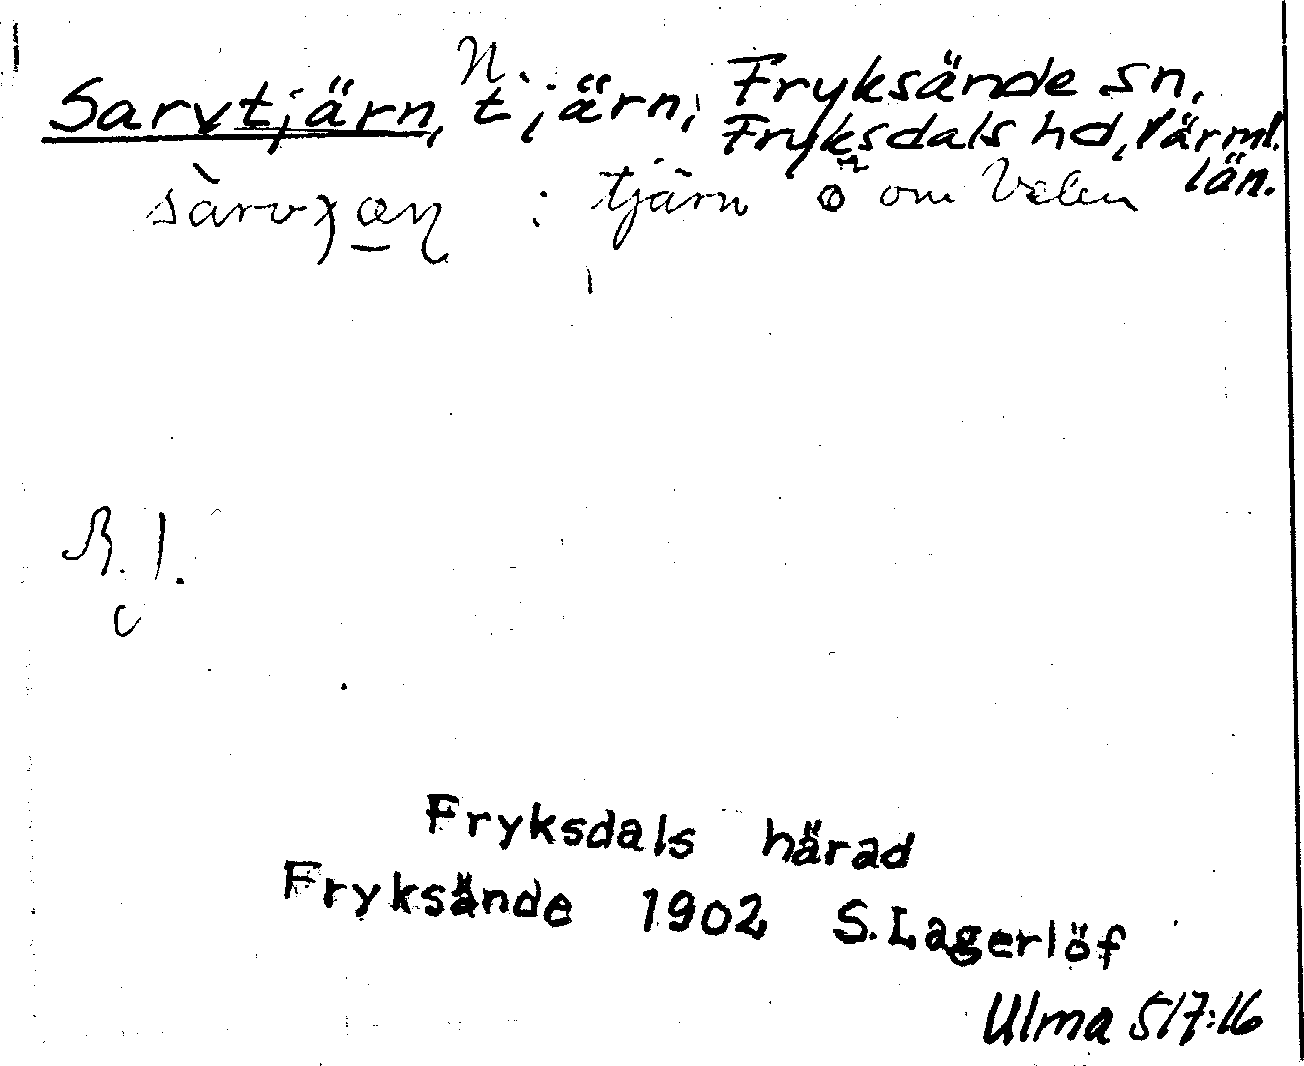 N.
Sarvtjärn, tjärn, Fryksände sn,
Fryksdals hd, Värml.
län.
: tjärn om Velen
R. 1.
Fryksdals härad
Fryksände 1902 S. Lagerlöf
Ulma 517:16